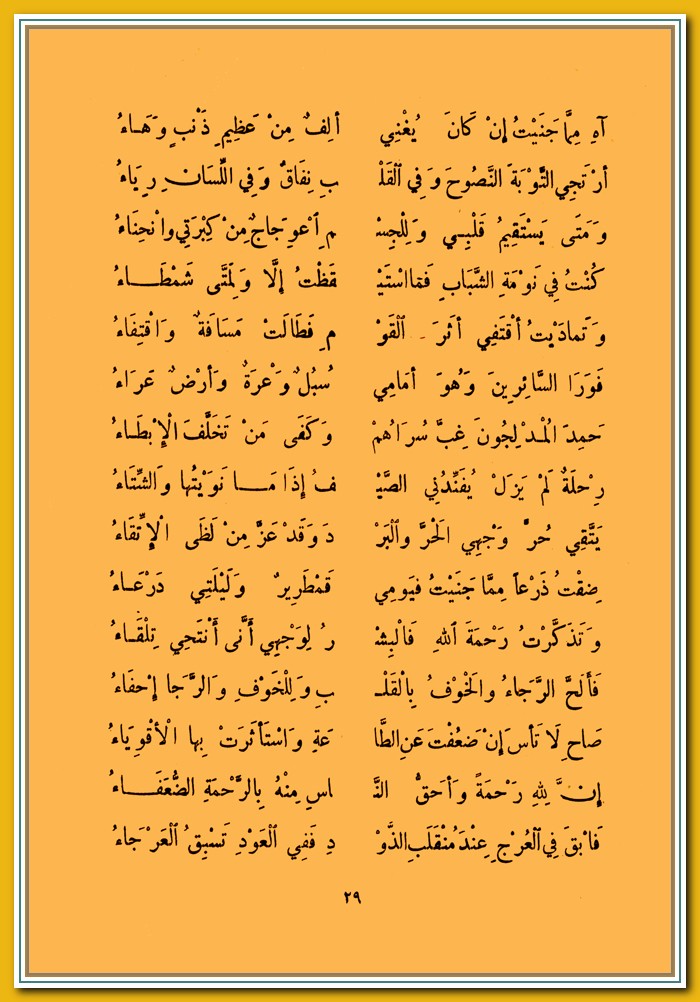 آهِ مِمَّا جَنَيْتُ إِنْ كَانَ يُغْنِي أَلِفٌ مِنْ عَظِيمِ ذَنْبٍ وَهَاءُ
أَرْتَجِي التَّوْبَةَ النَّصُوحَ وَفِي الْقَلْبِ نِفَاقٌ وَفِي اللِّسَانِ رِيَاءُ
وَمَتَى يَسْتَقِيمُ قَلْبِي وَلِلْجِسْمِ اعْوِجَاجٌ مِنْ كِبْرَتِي وانْحِنَاءُ
كُنْتُ فِي نَوْمَةِ الشَّبَابِ فَمَا اسْتَيْقَظْتُ إِلَّا وَلِمَّتَى شَمْطَاءُ
وَتَمادَيْتُ أَقْتَفِي أَثَرَ الْقَوْمِ فَطَالَتْ مَسَافَةٌ وَاقْتِفَاءُ
فَوَرَا السَّائِرِينَ وَهُوَ أَمَامِي سُبُلٌ وَعْرَةٌ وَأَرْضٌ عَرَاءُ
حَمِدَ الْمُدْلِجُونَ غِبَّ سُرَاهُمْ وَكَفَى مَنْ تَخَلَّفَ الْإِبْطَاءُ
رِحْلَةٌ لَمْ يَزَلْ يُفَنِّدُنِي الصَّيْفُ إِذَا مَا نَوَيْتُها وَالشِّتَاءُ
يَتَّقِي حُرَّ وَجْهِي الْحَرَّ وَالْبَرْدَ وَقَدْ عَزَّ مِنْ لَظَى الْإِتِّقَاءُ
ضِقْتُ ذَرْعاً مِمَّا جَنَيْتُ فَيَومِي قَمْطَرِيرٌ وَلَيْلَتِي دَرْعَاءُ
وَتَذَكَّرْتُ رَحْمَةَ اللهِ فَالْبِشْرُ لِوَجْهِي أَنَّى أَنْتَحِي تِلْقَاءُ
فَأَلَحَّ الرَّجَاءُ وَالْخَوْفُ بِالْقَلْبِ وَلِلْخَوْفِ وَالرَّجَا إِحْفَاءُ
صَاحِ لَا تَأْسَ إِنْ ضَعُفْتَ عَنِ الطَّاعَةِ وَاسْتَأْثَرَتْ بِها الْأَقْوِيَاءُ
إِنَّ لِلهِ رَحْمَةً وَأَحَقُّ النَّاسِ مِنْهُ بِالرَّحْمَةِ الضُّعَفَاءُ
فَابْقَ فِي الْعُرْجِ عِنْدَ مُنْقَلَبِ الذَّوْدِ فَفِي الْعَوْدِ تَسْبِقُ الْعَرْجَاءُ
٢٩